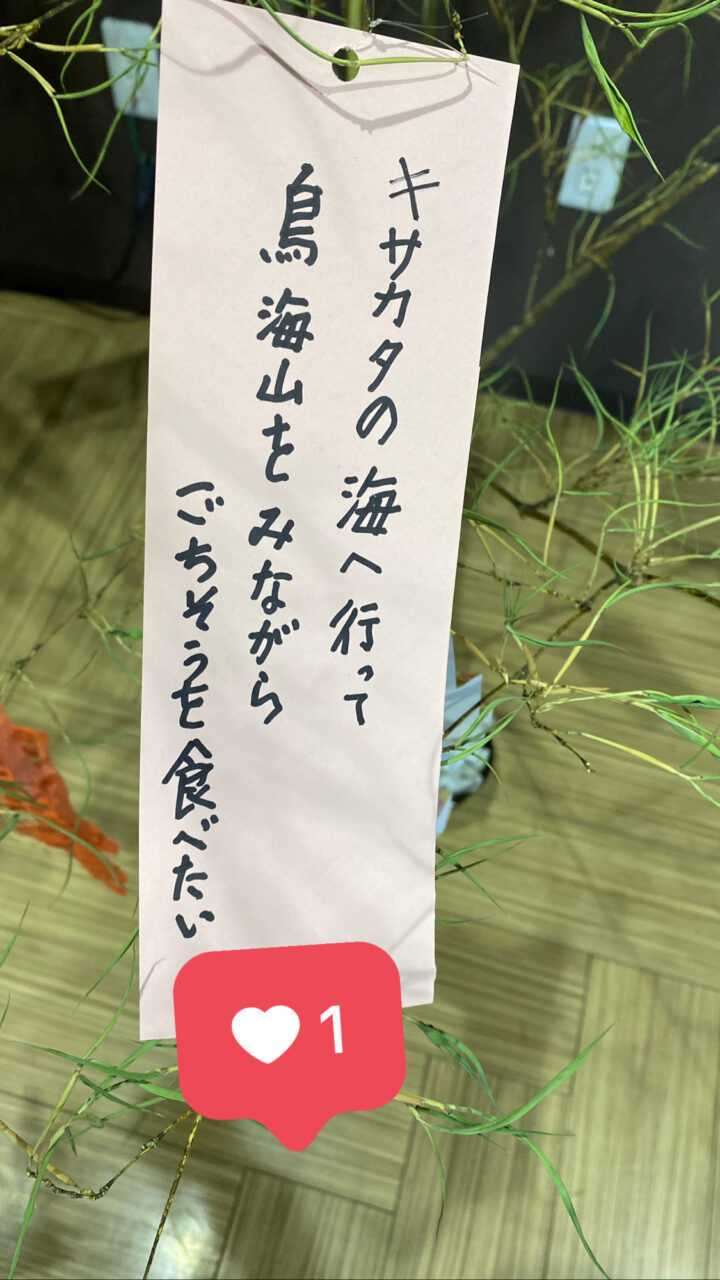 キサカタの海へ行って
鳥海山をみながら
ごちそうを食べたい
1